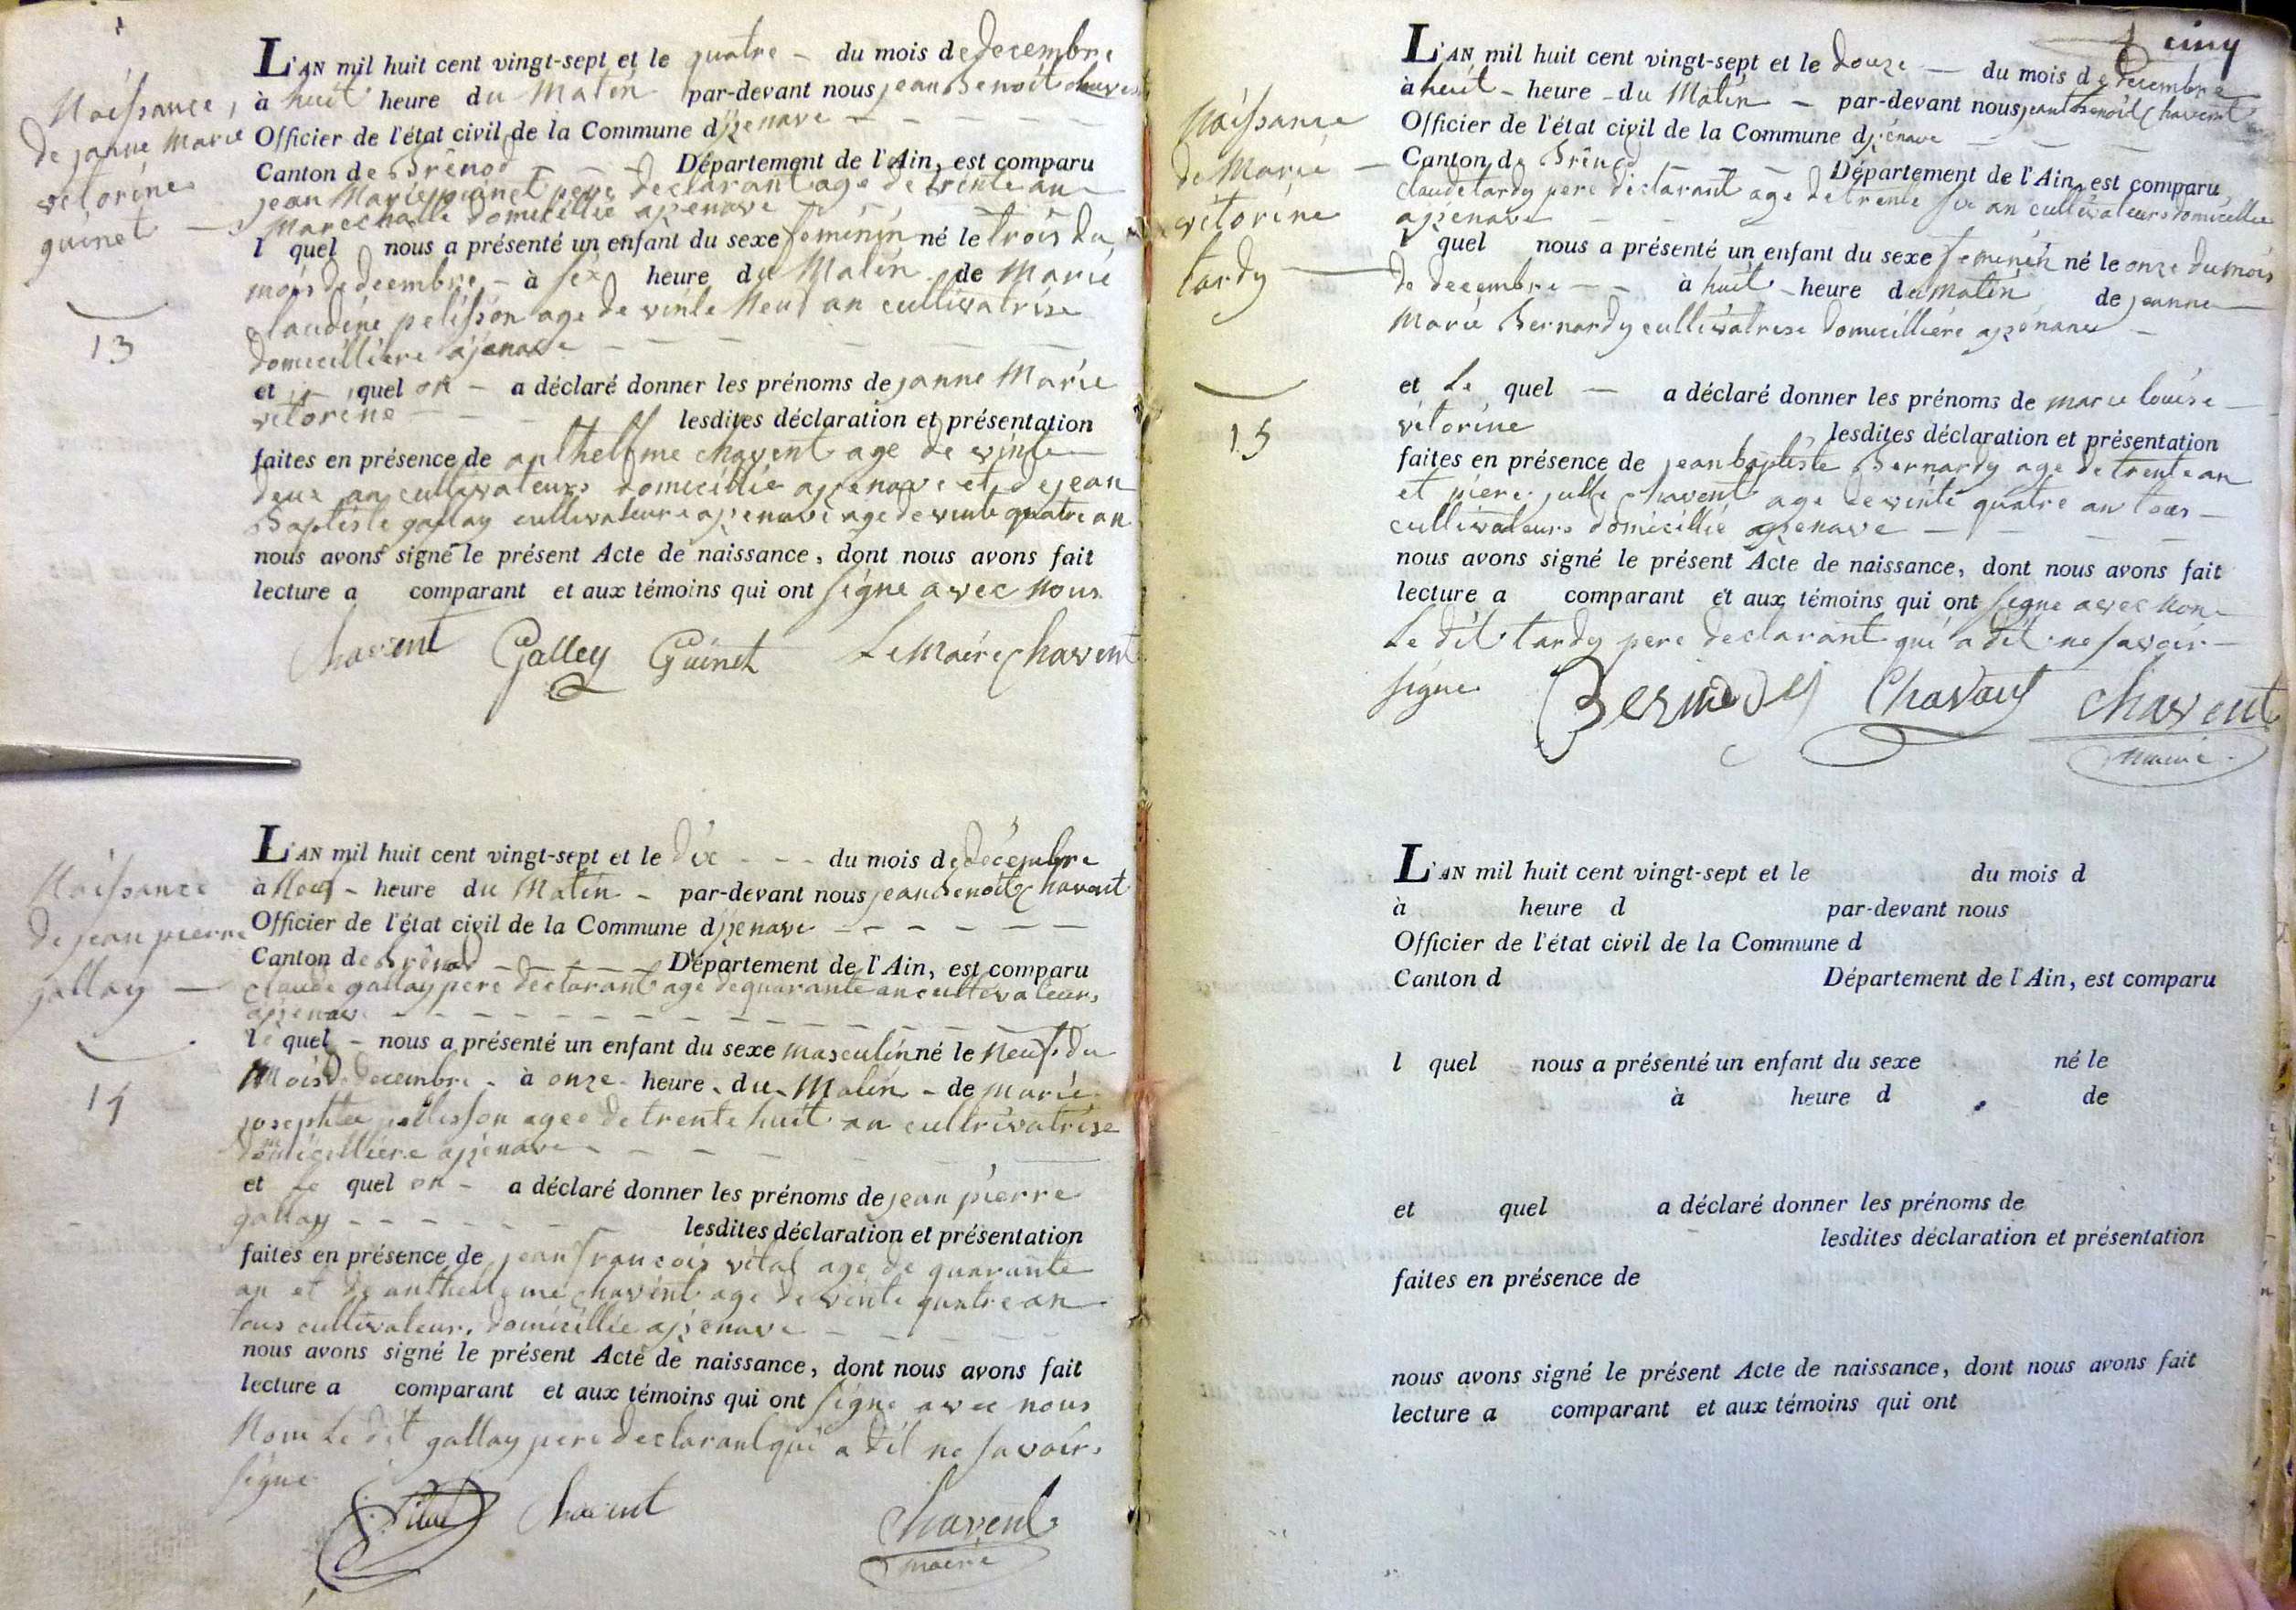 Naissance
de janne Marie
vitorine
guinet
13
L'AN mil huit cent vingt-sept et le quatre - du mois de decembre
à huit heure du Matin par-devant nous jean Benoit
Officier de l'état civil de la Commune d
Canton de Brénod - - Département de l'Ain, est comparu
jean Marie guinet pere declarant age de trente an
Marechalle domicillié
l quel nous a présenté un enfant du sexe feminin né le trois du
mois de decembre - à six heure du Matin de Marie
Claudine pelisson age de vinte Neuf an cultivatrise
domicilliere
et quel on - a déclaré donner les prénoms de janne Marie
vitorine - - lesdites déclaration et présentation
faites en présence de anthelme chavent age de vinte
deux an cultivateurs domicillié et de jean
Baptiste gallay cultivateure age de vinte quatre an
nous avons signé le présent Acte de naissance, dont nous avons fait
lecture a comparant et aux témoins qui ont signe avec nous
Chavent Galley Guinet Le Maire Chavent
Naissance
de jean pierre
gallay
14
L'AN mil huit cent vingt-sept et le dix - - - du mois de décembre
à Neuf - heure du Matin - par-devant nous jean Benoit Chavent
Officier de l'état civil de la Commune d
Canton de Brénod - - - Département de l'Ain, est comparu
Claude gallay pere declarant age de quarante an cultivateurs
le quel - nous a présenté un enfant du sexe masculin né le Neuf du
Mois De decembre - à onze heure du Matin - de marie
josephte pelisson agee de trente huit an cultivatrise
domicilliere
et Le quel on - a déclaré donner les prénoms de jean pierre
gallay - - - lesdites déclaration et présentation
faites en présence de jean françois vital age de quarante
an et de anthelme chavent age de vinte quatre an
tous cultivateurs domicillie
nous avons signé le présent Acte de naissance, dont nous avons fait
lecture a comparant et aux témoins qui ont signe avec nous
Nom Le dit gallay pere declarant qui a dit ne savoir
signe
Vital Chavent Chavent
maire
cinq
Naissance
de Marie
vitorine
tardy
15
L'AN mil huit cent vingt-sept et le douze - du mois de decembre
à huit - heure - du Matin - par-devant nous jean Benoit Chavent
Officier de l'état civil de la Commune d
Canton de Brénod - - - Département de l'Ain, est comparu
Claude tardy pere declarant age de trente six an cultivateurs domicillie
l quel nous a présenté un enfant du sexe feminin né le onze du mois
de decembre - - à huit - heure du matin de jeanne
Marie Bernardy cultivatrise domicilliére
et Le quel - a déclaré donner les prénoms de marie louise
vitorine lesdites déclaration et présentation
faites en présence de jean baptiste Bernardy age de trente an
et piere chavent age de vinte quatre an tous
cultivateurs domicillié
nous avons signé le présent Acte de naissance, dont nous avons fait
lecture a comparant et aux témoins qui ont signe avec Non
Le dit tardy pere declarant qui a dit ne savoir
signe
Chavent
maire
L'AN mil huit cent vingt-sept et le du mois d
à heure d par-devant nous
Officier de l'état civil de la Commune d
Canton d Département de l'Ain, est comparu
l quel nous a présenté un enfant du sexe né le
à heure d de
et quel a déclaré donner les prénoms de
lesdites déclaration et présentation
faites en présence de
nous avons signé le présent Acte de naissance, dont nous avons fait
lecture a comparant et aux témoins qui ont